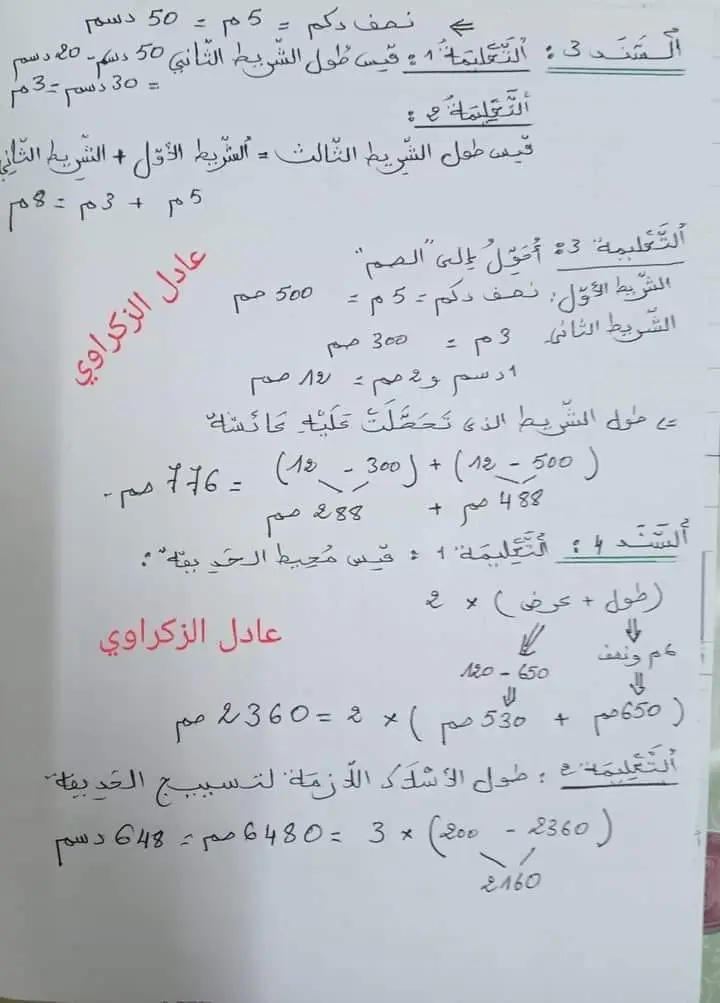 ⇐ نصف دكم = 5م = 50 دسم
السّند 3: التّعليمة 1: قيس طول الشّريط الثّاني 50 دسم - 20 دسم
= 30 دسم = 3م
التّعليمة 2:
قيس طول الشّريط الثّالث = الشّريط الأوّل + الشّريط الثّاني
5م + 3م = 8م
التّعليمة 3: أحوّل إلى "الصم"
الشّريط الأوّل: نصف دكم = 5م = 500 صم
الشّريط الثاني 3م = 300 صم
1 دسم و 2صم = 12 صم
=> طول الشّريط الذي تَحَصَّلَتْ عَلَيْهِ عَائشة
(500 - 12) + (300 - 12) = 776 صم.
488 صم + 288 صم
السَّنَد 4: التّعليمة 1: قيس مُحيط الحديقة:
(طول + عرض) × 2
6م ونصف
650 - 120
(650صم + 530 صم) × 2 = 2360 صم
التّعليمة 2: طول الأسلاك اللّازمة لتسييج الحديقة
(2360 - 200) × 3 = 6480 صم = 648 دسم
2160
عادل الزكراوي
عادل الزكراوي